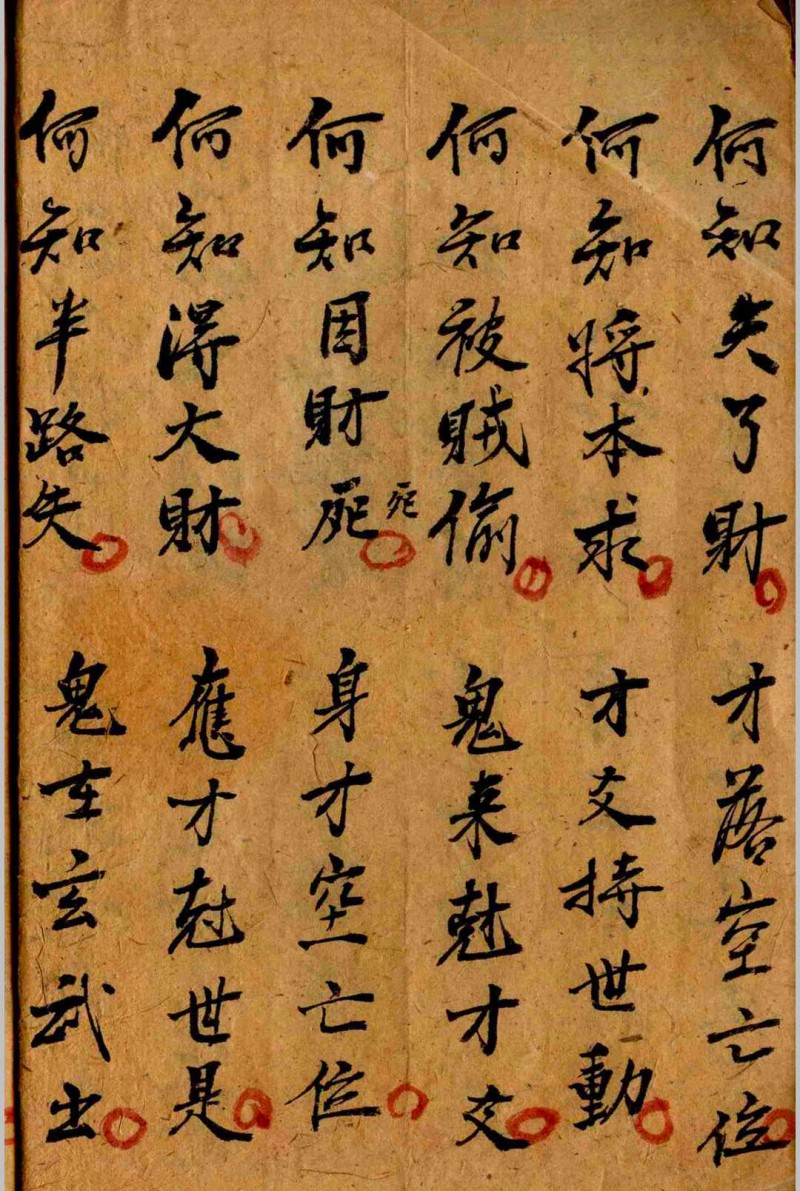 何知失了財 才落空亡位
何知將本求 才爻持世動
何知被賊偷 鬼来尅才爻
何知因財死 死 身才空亡位
何知得大財 應才尅世是
何知半路失 鬼在玄武出